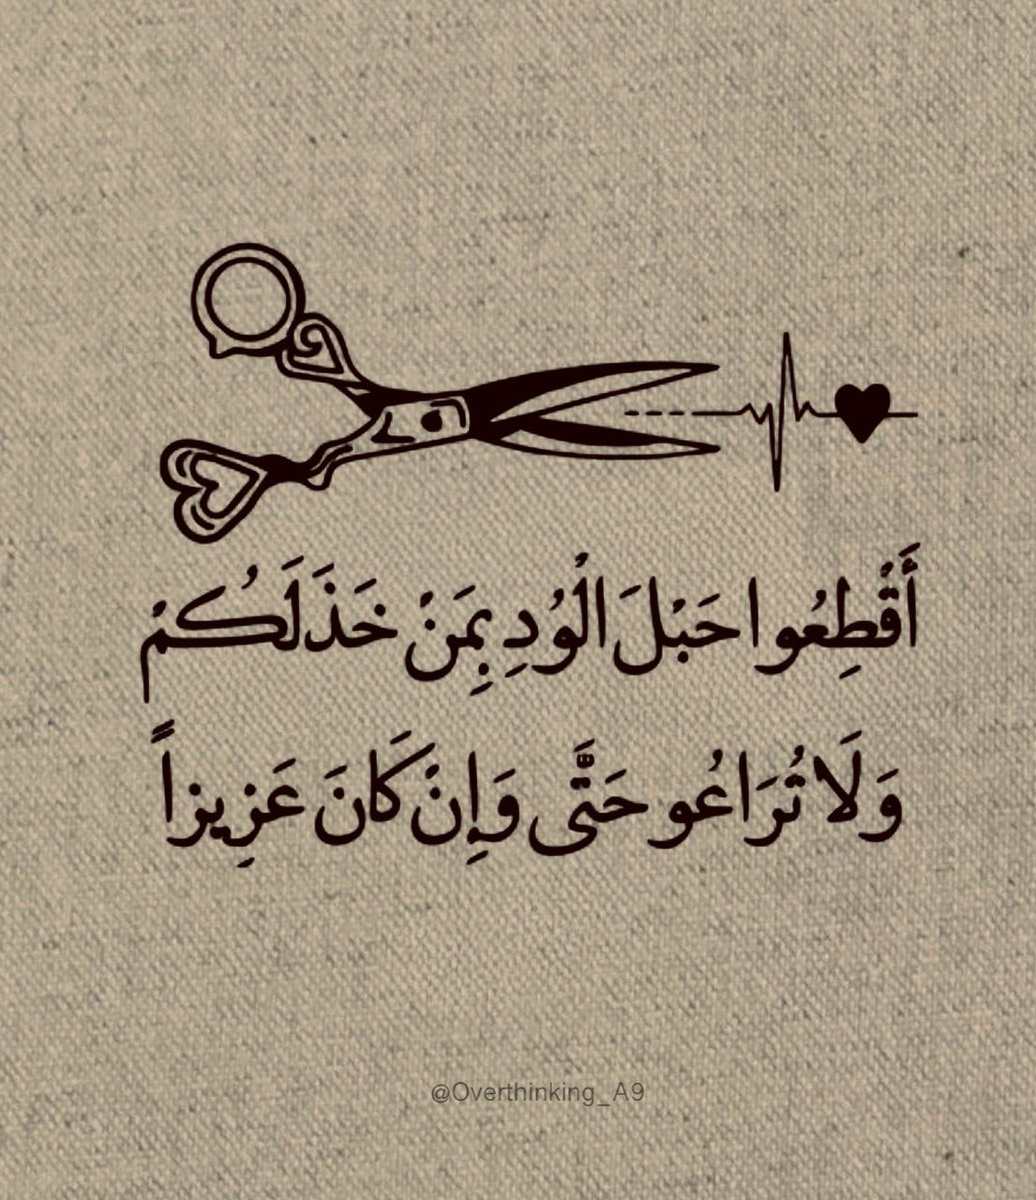 أَقْطِعُوا حَبْلَ الْوُدِ بِمَنْ خَذَلَكُمْ
وَلَا تُرَاعُو حَتَّى وَإِنْ كَانَ عَزِيزاً
@Overthinking_A9